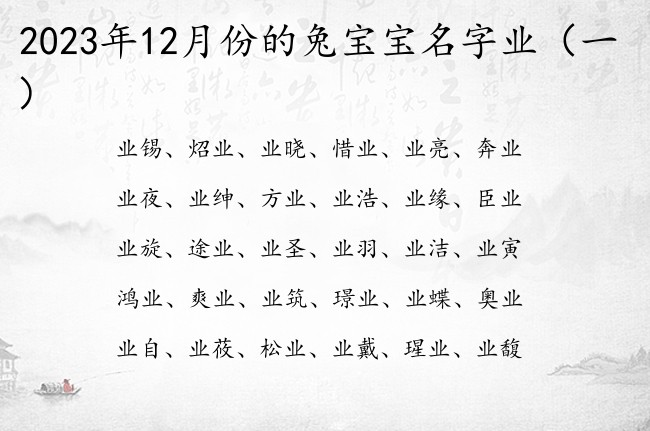 2023年12月份的兔宝宝名字业（一
）
业锡、炤业、业晓、惜业、业亮、奔业
业夜、业绅、方业、业浩、业缘、臣业
业旋、途业、业圣、业羽、业洁、业寅
鸿业、爽业、业筑、璟业、业蝶、奥业
业自、业莜、松业、业戴、瑆业、业馥